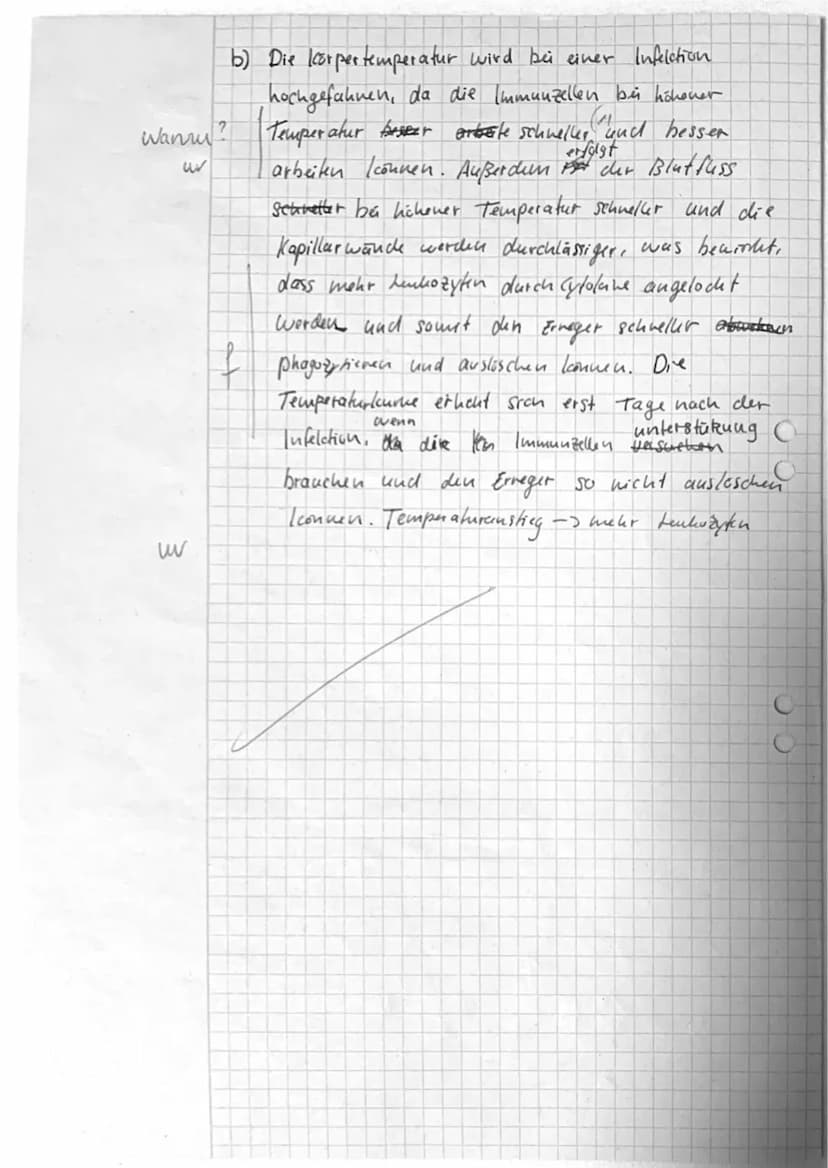 b) Die Körpertemperatur wird bei einer Infektion
hochgefahren, da die Immunzellen bei höherer
Warum?
Temperatur besser arbeite schneller und besser
uv
erfolgt
arbeiten können. Außerdem ist der Blutfluss
schneller bei höherer Temperatur schneller und die
Kapillarwände werden durchlässiger, was bewirkt,
dass mehr Leukozyten durch Cytokine angelockt
werden und somit den Erreger schneller
f
phagozytieren und auslöschen können. Die
Temperaturkurve erhöht sich erst Tage nach der
wenn
unterstützung
Infektion, da die Immunzellen versuchen
brauchen und den Erreger so nicht auslöschen
können. Temperaturanstieg -> mehr Leukozyten
uv